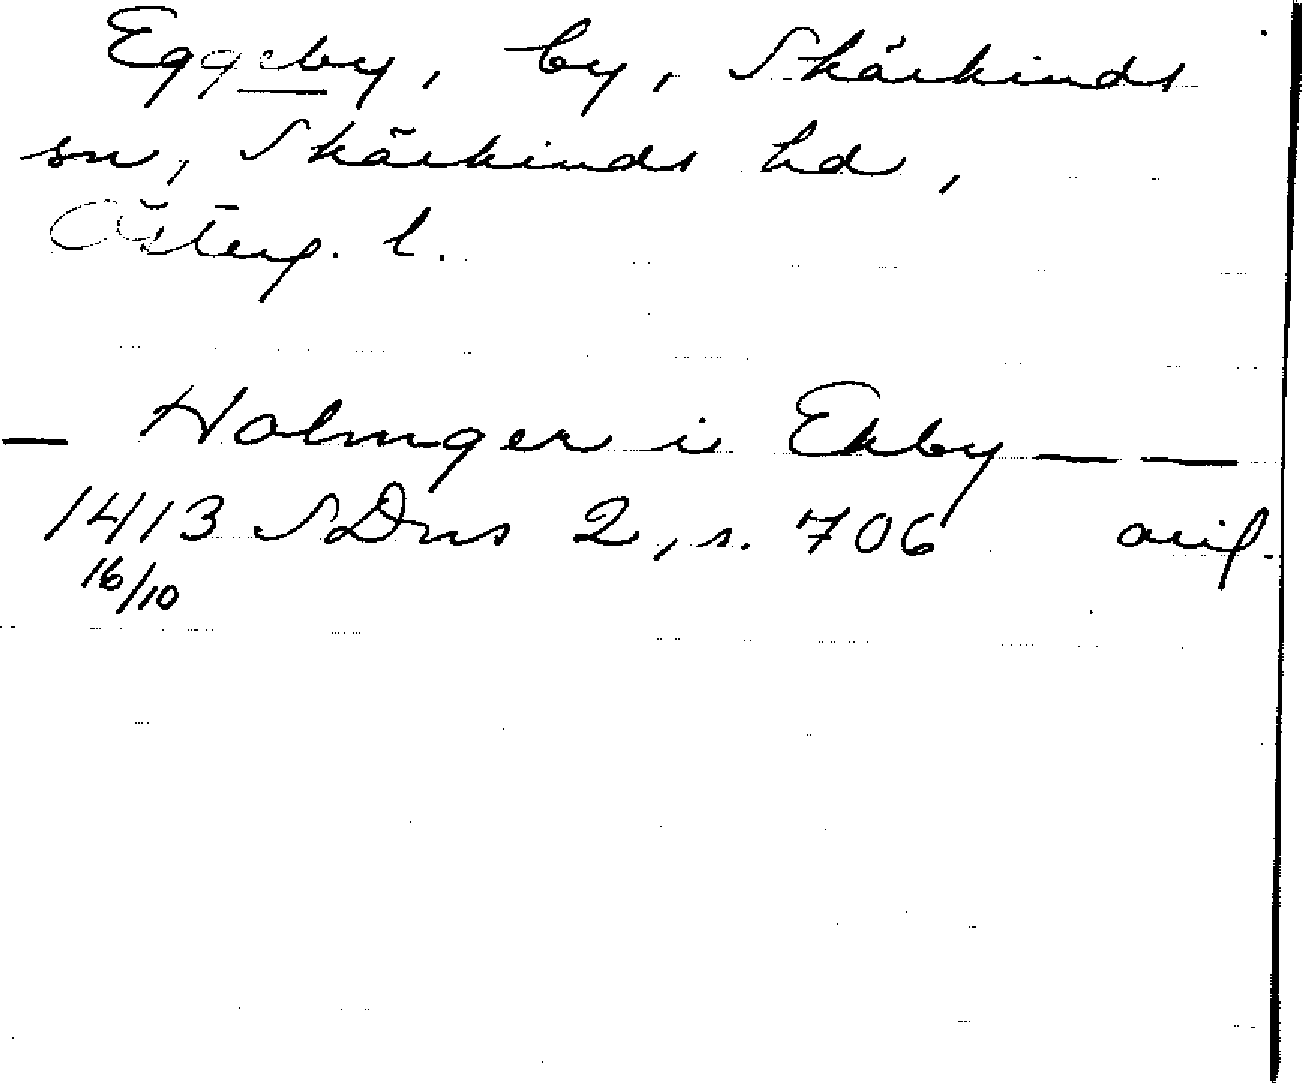 Eggeby, by, Skärkinds
sn, Skärkinds hd,
Österg. l.
— Holmger i Ekby — —
1413 SDns 2, s. 706 orig.
16/10